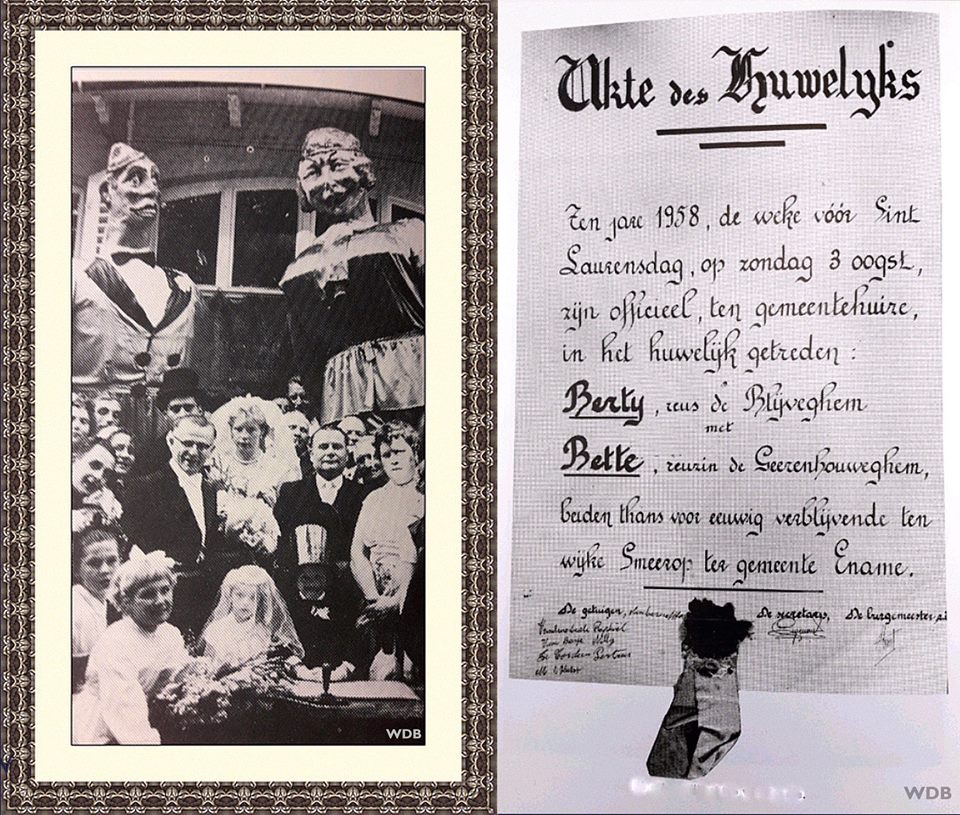 WDB
Akte des Huwelyks
Ten jare 1958, de weke vóór Sint
Laurensdag, op zondag 3 oogst,
zijn officieel, ten gemeentehuize,
in het huwelijk getreden :
Berty, reus de Blijveghem
met
Bette, reuzin de Geerenhouweghem,
beiden thans voor eeuwig verblijvende ten
wijke Smeerop ter gemeente Ename.
De getuigen, De secretaris, De burgemeester
WDB